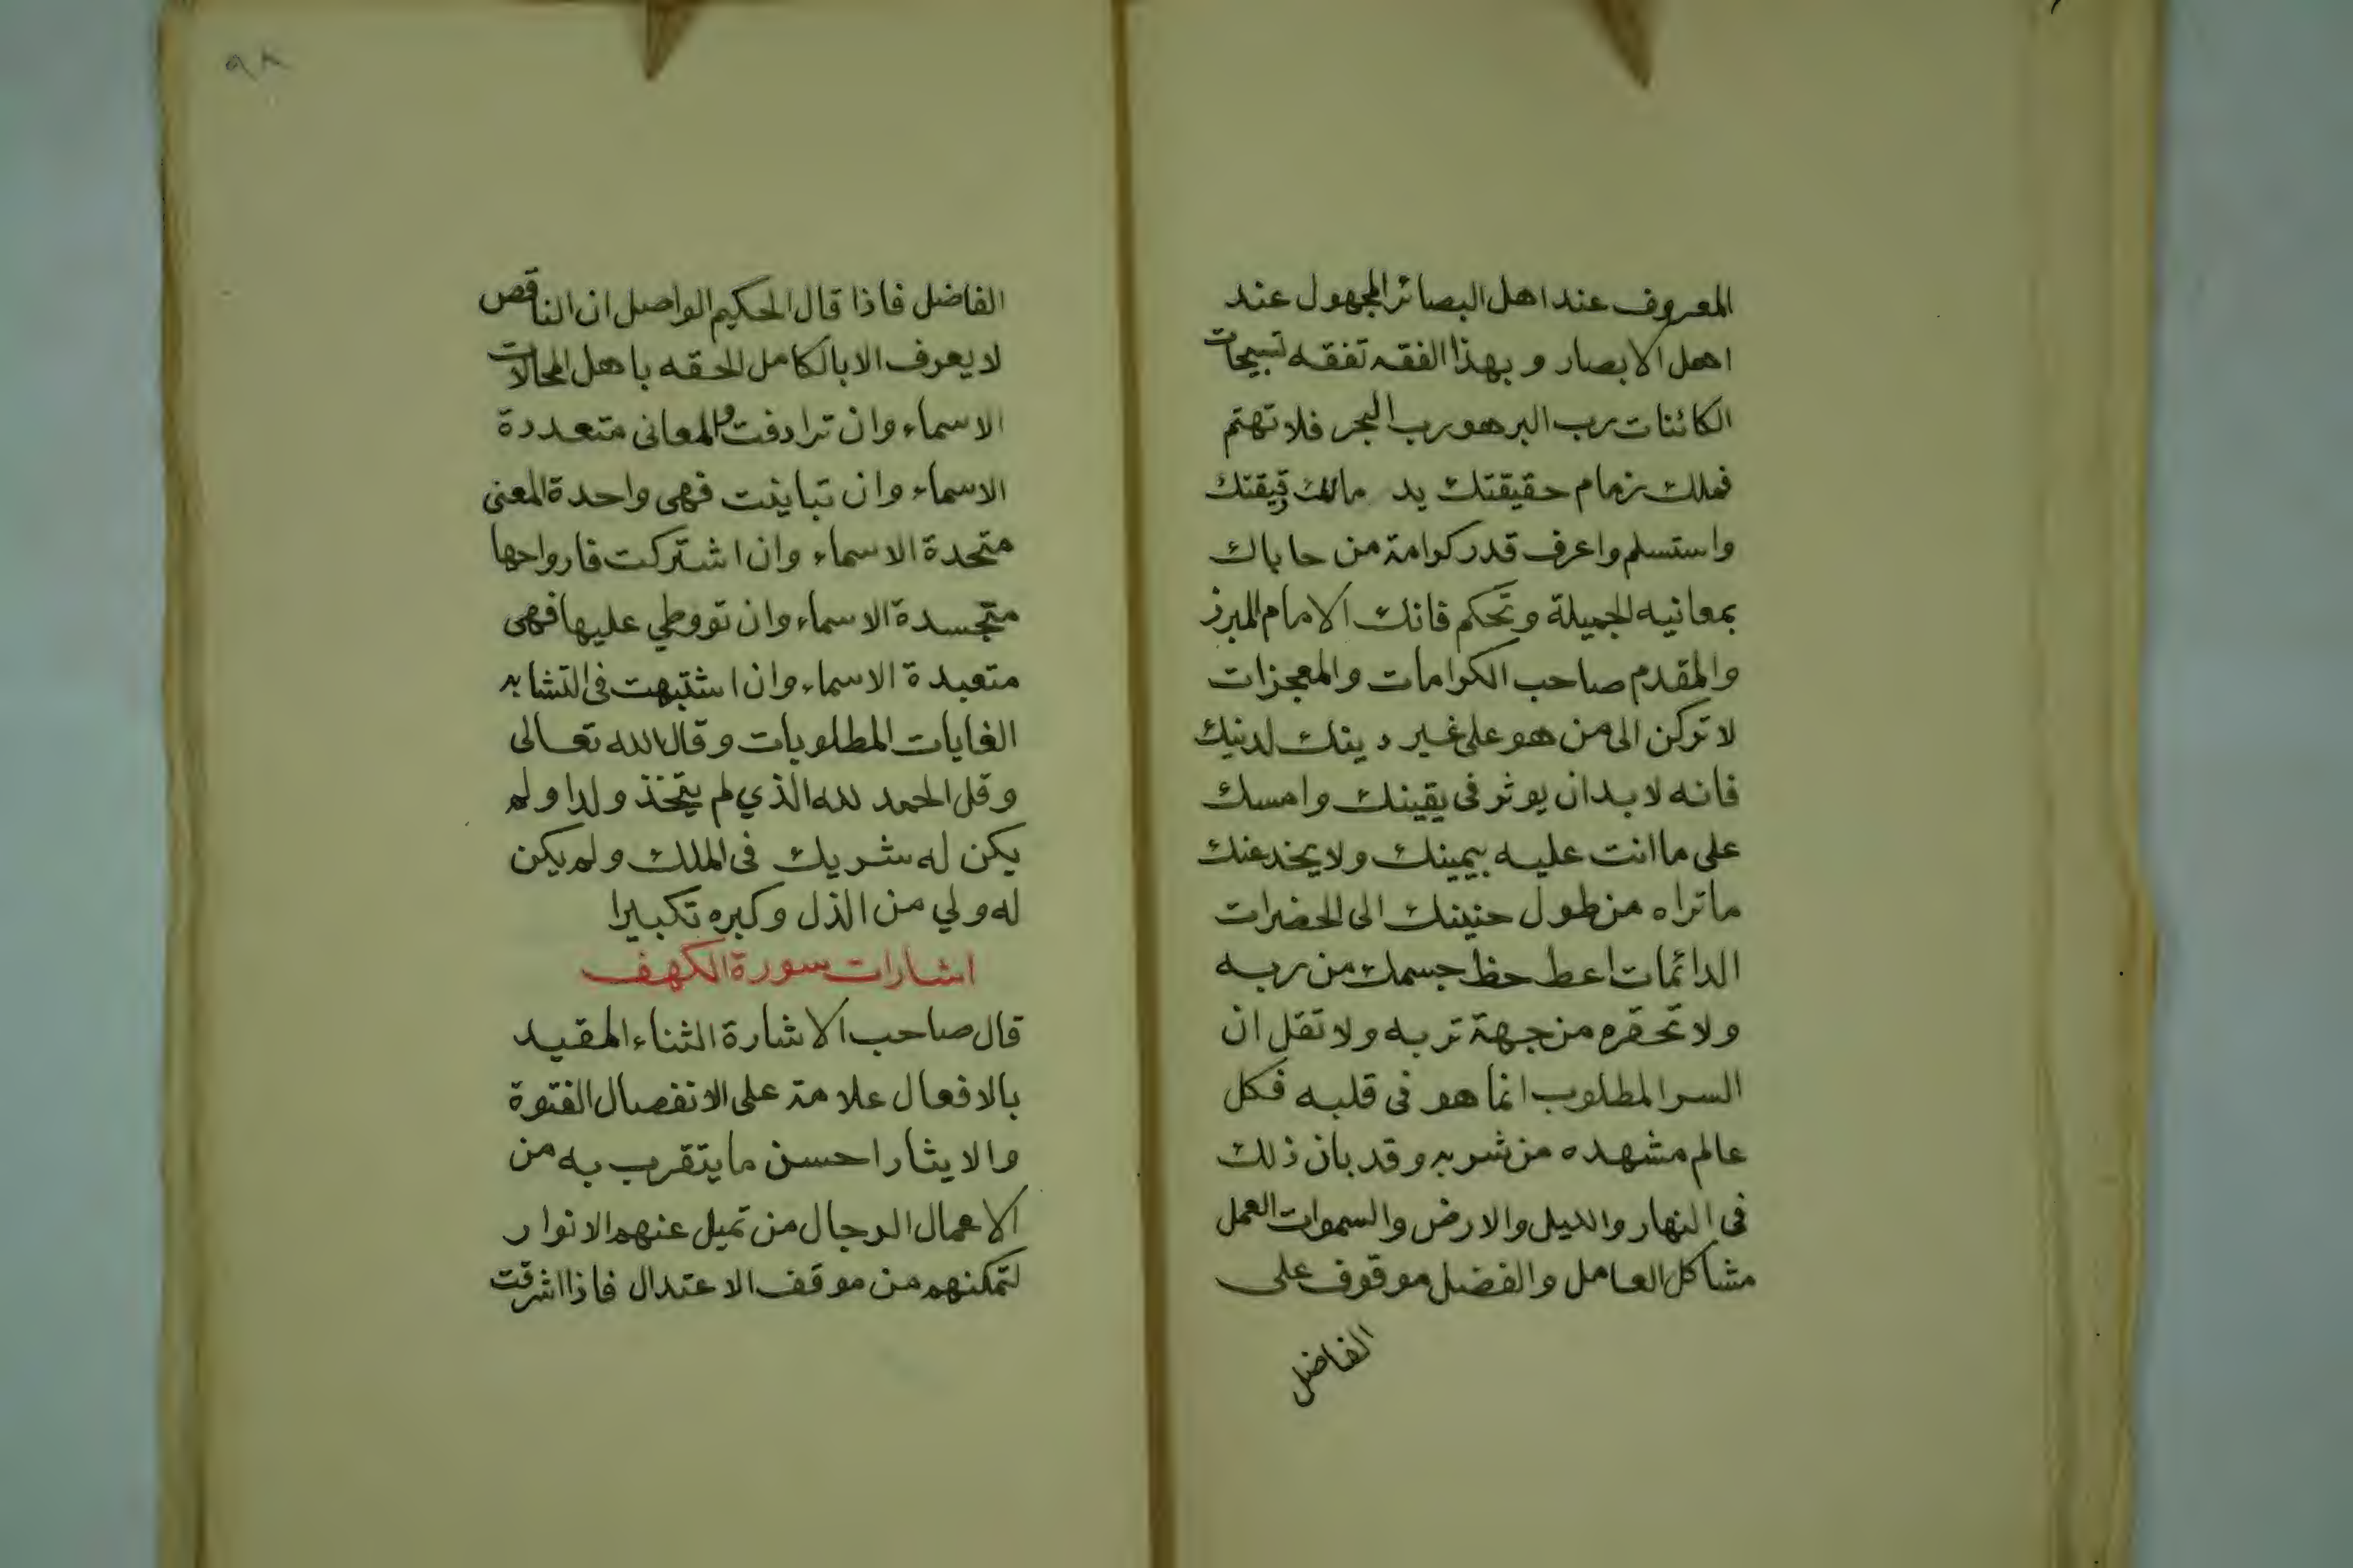 المعروف عند اهل البصائر المجهول عند
اهل الابصار وبهذا الفقه تفقه تسبيحات
الكائنات رب البر هو رب البحر فلا تهتم
فملك زمام حقيقتك يد مالك رقيقتك
واستسلم واعرف قدر كرامة من حاباك
بمعانيه الجميلة وتحكم فانك الامام المبرز
والمقدم صاحب الكرامات والمعجزات
لا تركن الى من هو على غير دينك لدنيك
فانه لا بد ان يوثر فى يقينك وامسك
على ما انت عليه بيمينك ولا يخدعنك
ما تراه من طول حنينك الى الحضرات
الدائمات اعط حظ جسمك من ربه
ولا تحقره من جهة تربه ولا تقل ان
السر المطلوب انما هو فى قلبه فكل
عالم مشهده من شربه وقد بان ذلك
فى النهار والليل والارض والسموات العمل
مشاكل العامل والفضل موقوف على
الفاضل
٩٨
الفاضل فاذا قال الحكيم الواصل ان الناقص
لا يعرف الا بالكامل الحقه باهل المحالات
الاسماء وان ترادفت فالمعانى متعددة
الاسماء وان تباينت فهى واحدة المعنى
متحدة الاسماء وان اشتركت فارواحها
متجسدة الاسماء وان تووطي عليها فهى
متعبدة الاسماء وان اشتبهت فى التشابه
الغايات المطلوبات وقال الله تعالى
وقل الحمد لله الذي لم يتخذ ولدا ولم
يكن له شريك فى الملك ولم يكن
له ولي من الذل وكبره تكبيرا
اشارات سورة الكهف
قال صاحب الاشارة الثناء المقيد
بالافعال علامة على الانفصال الفتوة
والايثار احسن ما يتقرب به من
الاعمال الرجال من تميل عنهم الانوار
لتمكنهم من موقف الاعتدال فاذا اشرقت